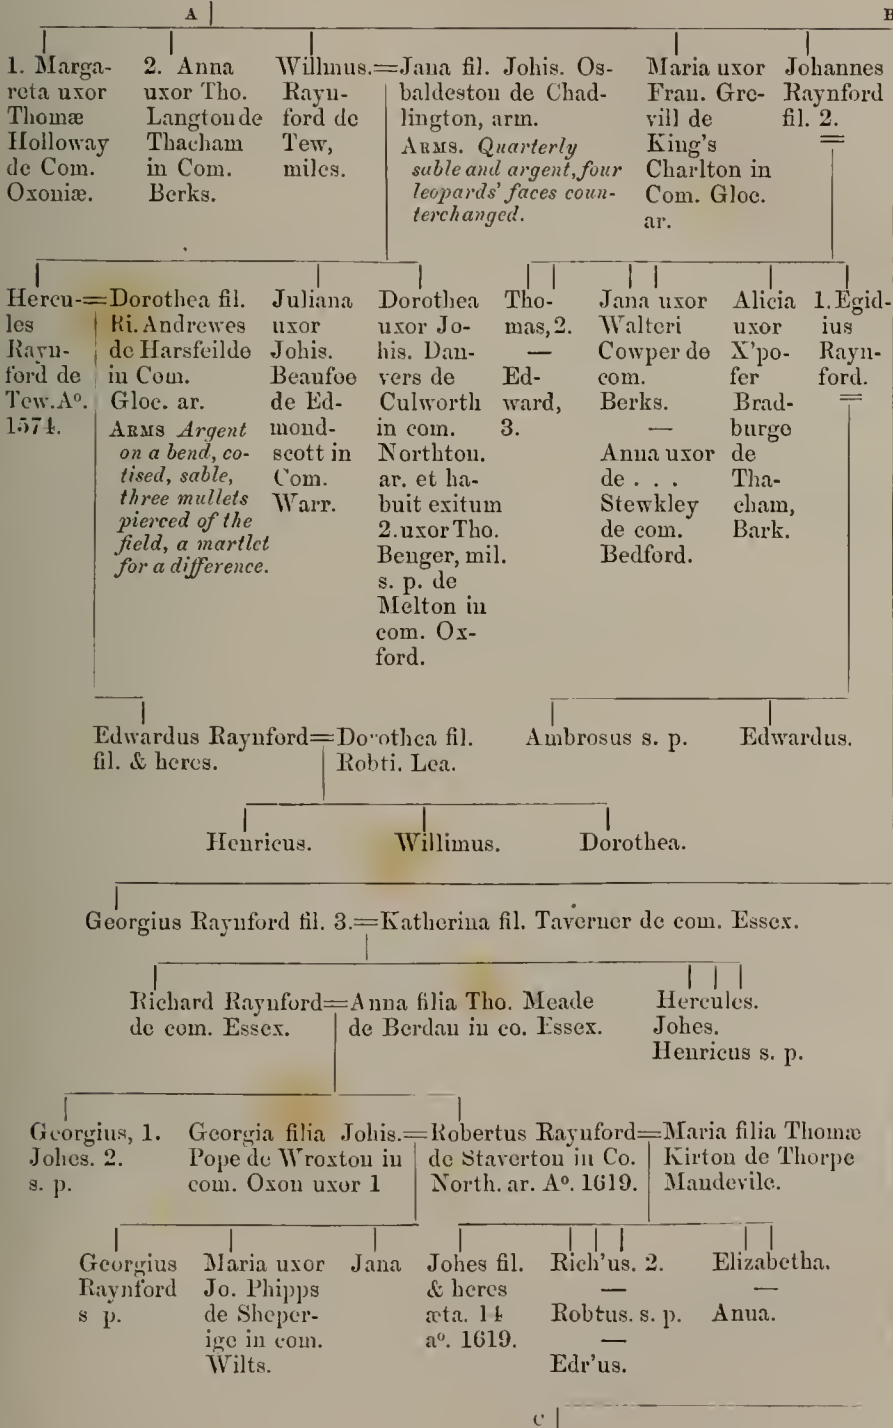 A
B
1. Marga-
reta uxor
Thomæ
Holloway
de Com.
Oxoniæ.
2. Anna
uxor Tho.
Langton de
Thacham
in Com.
Berks.
Willmus.=
Rayn-
ford de
Tew,
miles.
Jana fil. Johis. Os-
baldeston de Chad-
lington, arm.
ARMS. Quarterly
sable and argent, four
leopards' faces coun-
terchanged.
Maria uxor
Fran. Gre-
vill de
King's
Charlton in
Com. Gloc.
ar.
Johannes
Raynford
fil. 2.
Hercu-=
les
Rayn-
ford de
Tew. Aº.
1574.
Dorothea fil.
Ri. Andrewes
de Harsfeilde
in Com.
Gloc. ar.
ARMS Argent
on a bend, co-
tised, sable,
three mullets
pierced of the
field, a martlet
for a difference.
Juliana
uxor
Johis.
Beaufoe
de Ed-
mond-
scott in
Com.
Warr.
Dorothea
uxor Jo-
his. Dan-
vers de
Culworth
in com.
Northton.
ar. et ha-
buit exitum
2. uxor Tho.
Benger, mil.
s. p. de
Melton in
com. Ox-
ford.
Tho-
mas, 2.
—
Ed-
ward,
3.
Jana uxor
Walteri
Cowper de
com.
Berks.
—
Anna uxor
de . . .
Stewkley
de com.
Bedford.
Alicia
uxor
X'po-
fer
Brad-
burge
de
Tha-
cham,
Bark.
1. Egid-
ius
Rayn-
ford.
Edwardus Raynford=Dorothea fil.
fil. & heres. Robti. Lea.
Ambrosus s. p.
Edwardus.
Henricus. Willimus. Dorothea.
Georgius Raynford fil. 3.=Katherina fil. Taverner de com. Essex.
Richard Raynford=Anna filia Tho. Meade
de com. Essex. de Berdan in co. Essex.
Hercules.
Johes.
Henricus s. p.
Georgius, 1.
Johes. 2.
s. p.
Georgia filia Johis.=
Pope de Wroxton in
com. Oxon uxor 1
Robertus Raynford=
de Staverton in Co.
North. ar. Aº. 1619.
Maria filia Thomæ
Kirton de Thorpe
Maudevile.
Georgius
Raynford
s p.
Maria uxor
Jo. Phipps
de Sheper-
ige in com.
Wilts.
Jana
Johes fil.
& heres
æta. 14
aº. 1619.
Rich'us. 2.
—
Robtus. s. p.
—
Edr'us.
Elizabetha.
—
Anna.
C